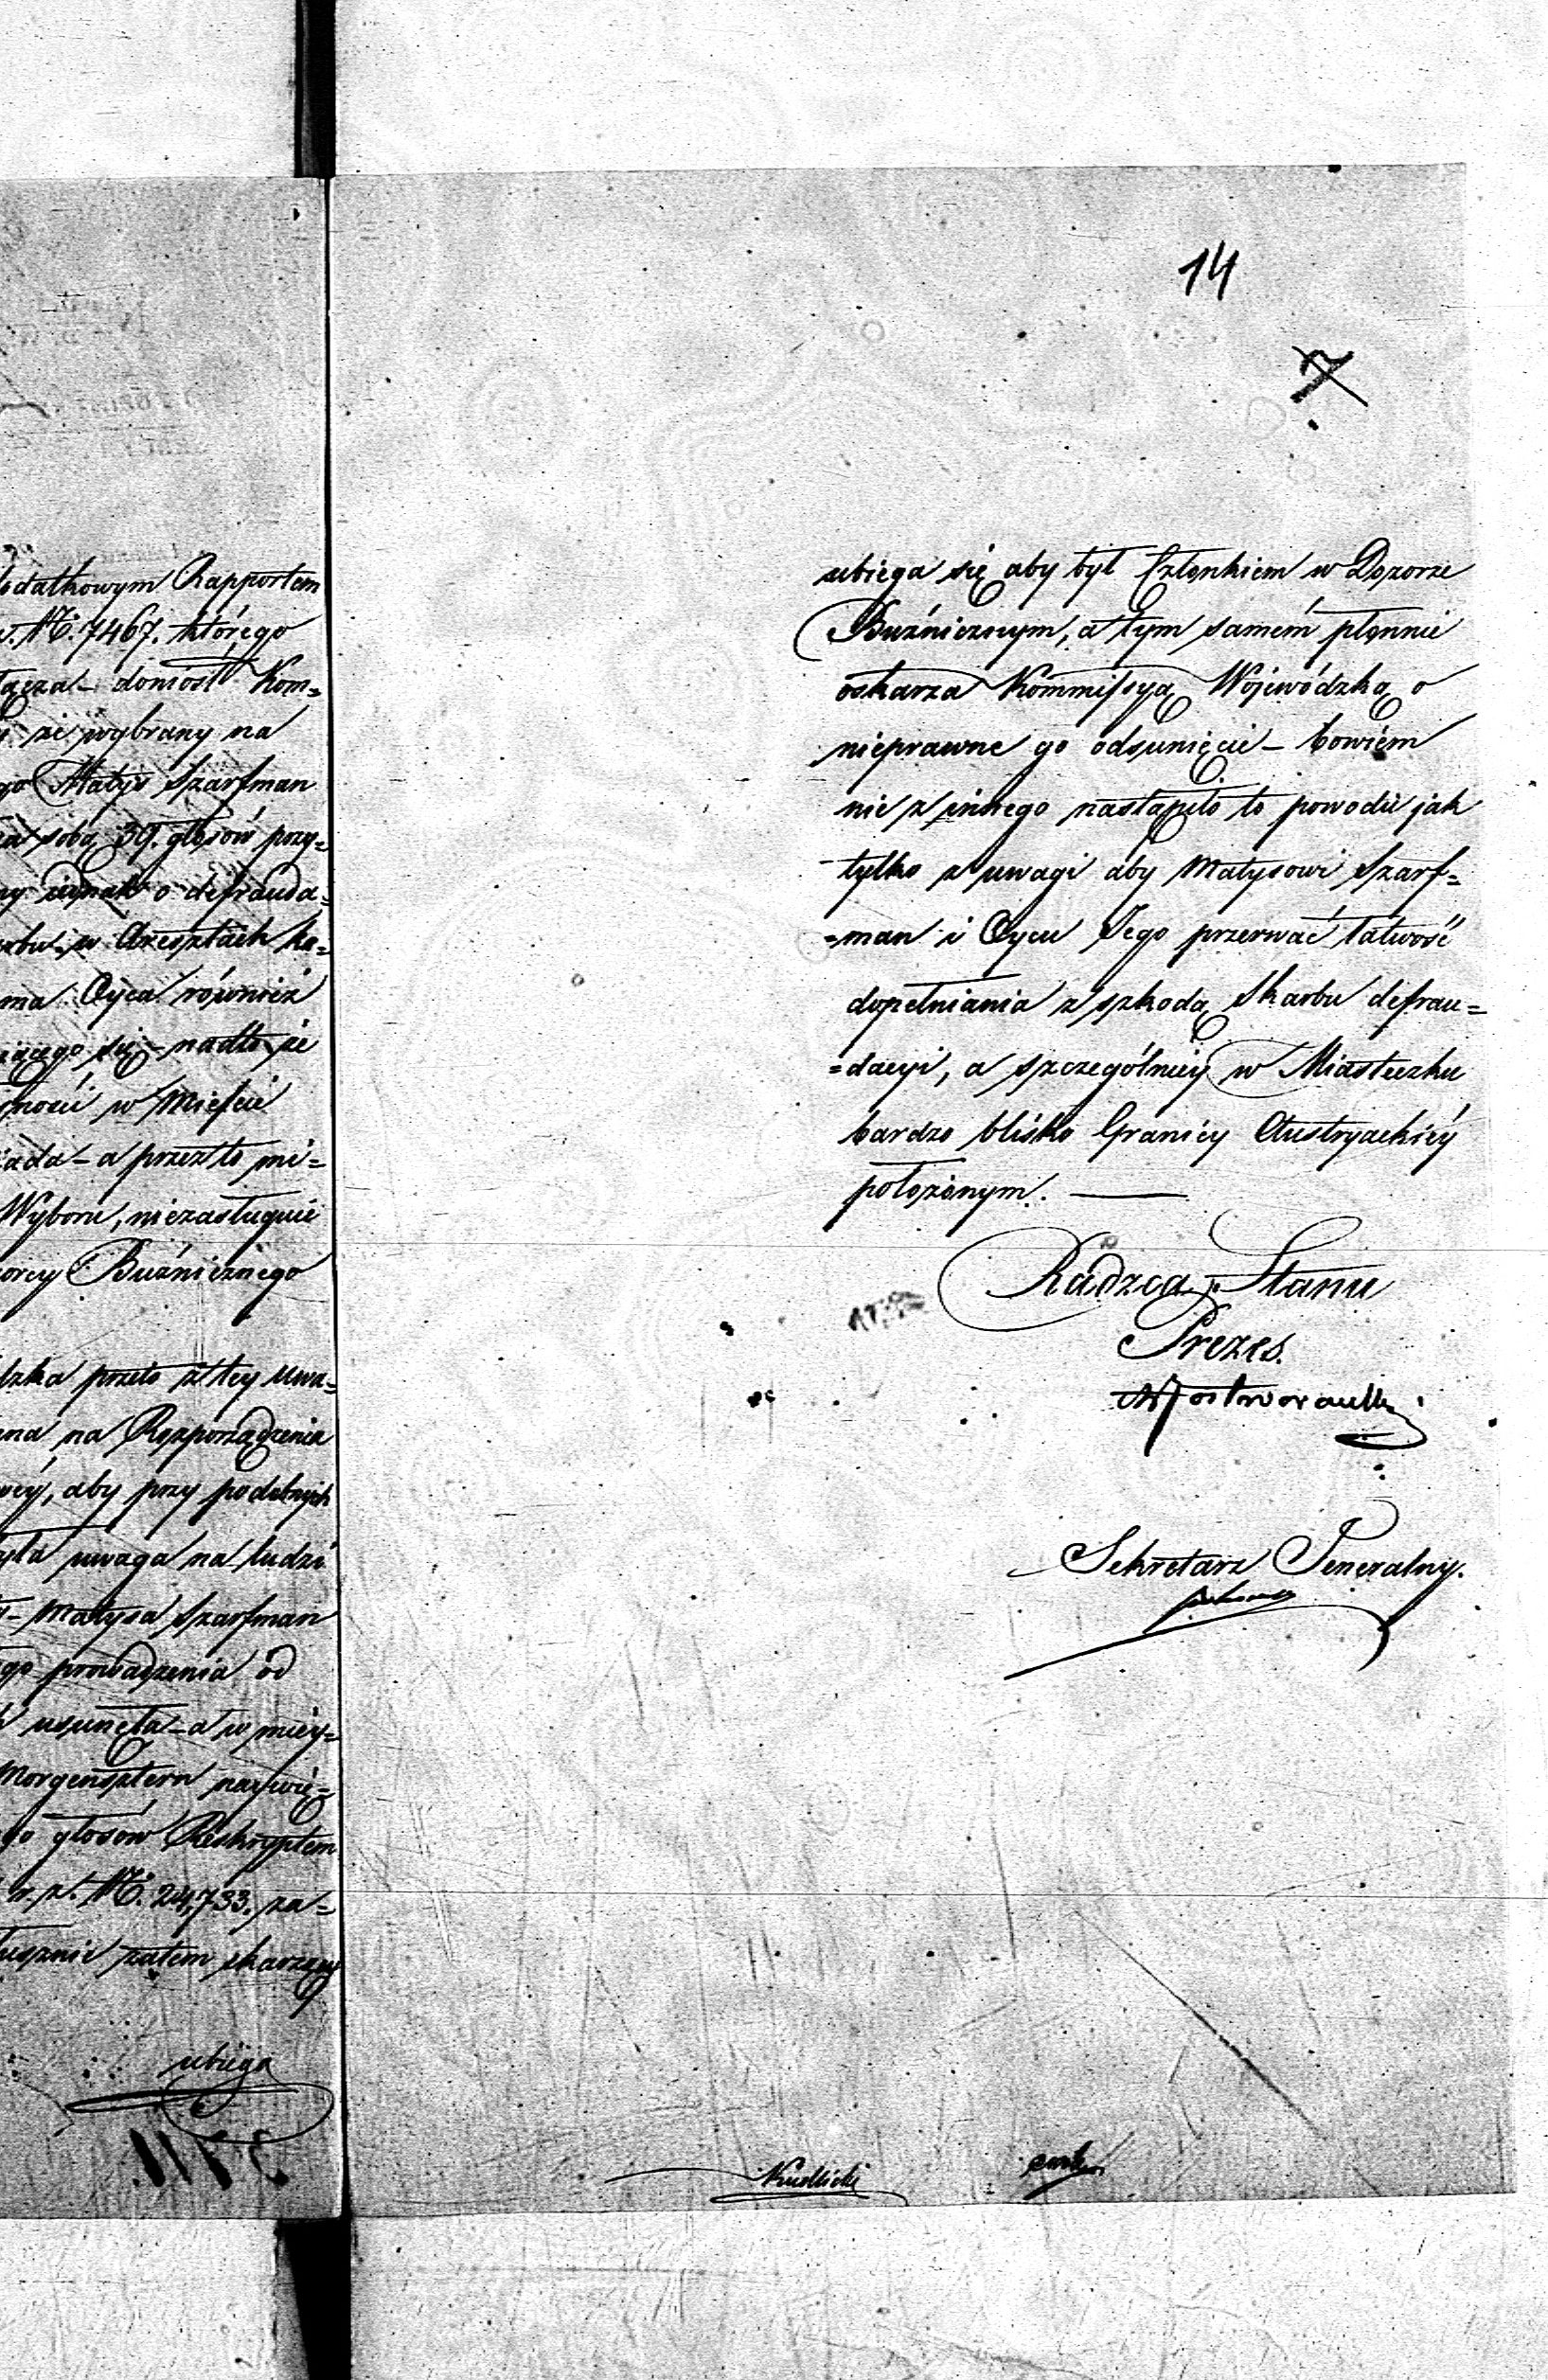 dodatkowym Rapportem
v. No. 7467. którego
łącza – doniósł Kom=
że wybrany na
go Matys Szarfman
sobą 39. głosów pozy=
ny jednak o defrauda=
w Aresztach ka=
ma Oyca również
iącego się – nadto że
w Mieście
iada – a przez to mi=
Wyboru, niezasługuie
orcy Bużnicznego
dzka przeto z tey uwa=
na na Rozporządzenia
wéy, aby przy podobnych
yła uwaga na ludzi
– Matysa Szarfman
go prowadzenia od
usunęła – a w miey=
Morgensztern naywię=
go głosów Reskryptem
r. z. No. 24,733. za=
łusznie zatem skarżący
ubiega
14
7
ubiega się aby był Członkiem w Dozorze
Bużnicznym, a tym samém płonnie
oskarża Kommissyą Wojewódzką o
nieprawne go odsunięcie – bowiem
nie z innego nastąpiło to powodu jak
tylko z uwagi aby Matysowi Szarf=
=man i Oycu Jego przerwać łatwość
dopełniania z szkodą Skarbu defrau=
=dacyi, a szczególniey w Miasteczku
bardzo blisko Granicy Austryackiéy
położonym. —
Radzca Stanu
Prezes.
Sekretarz Jeneralny.
Kudlicki